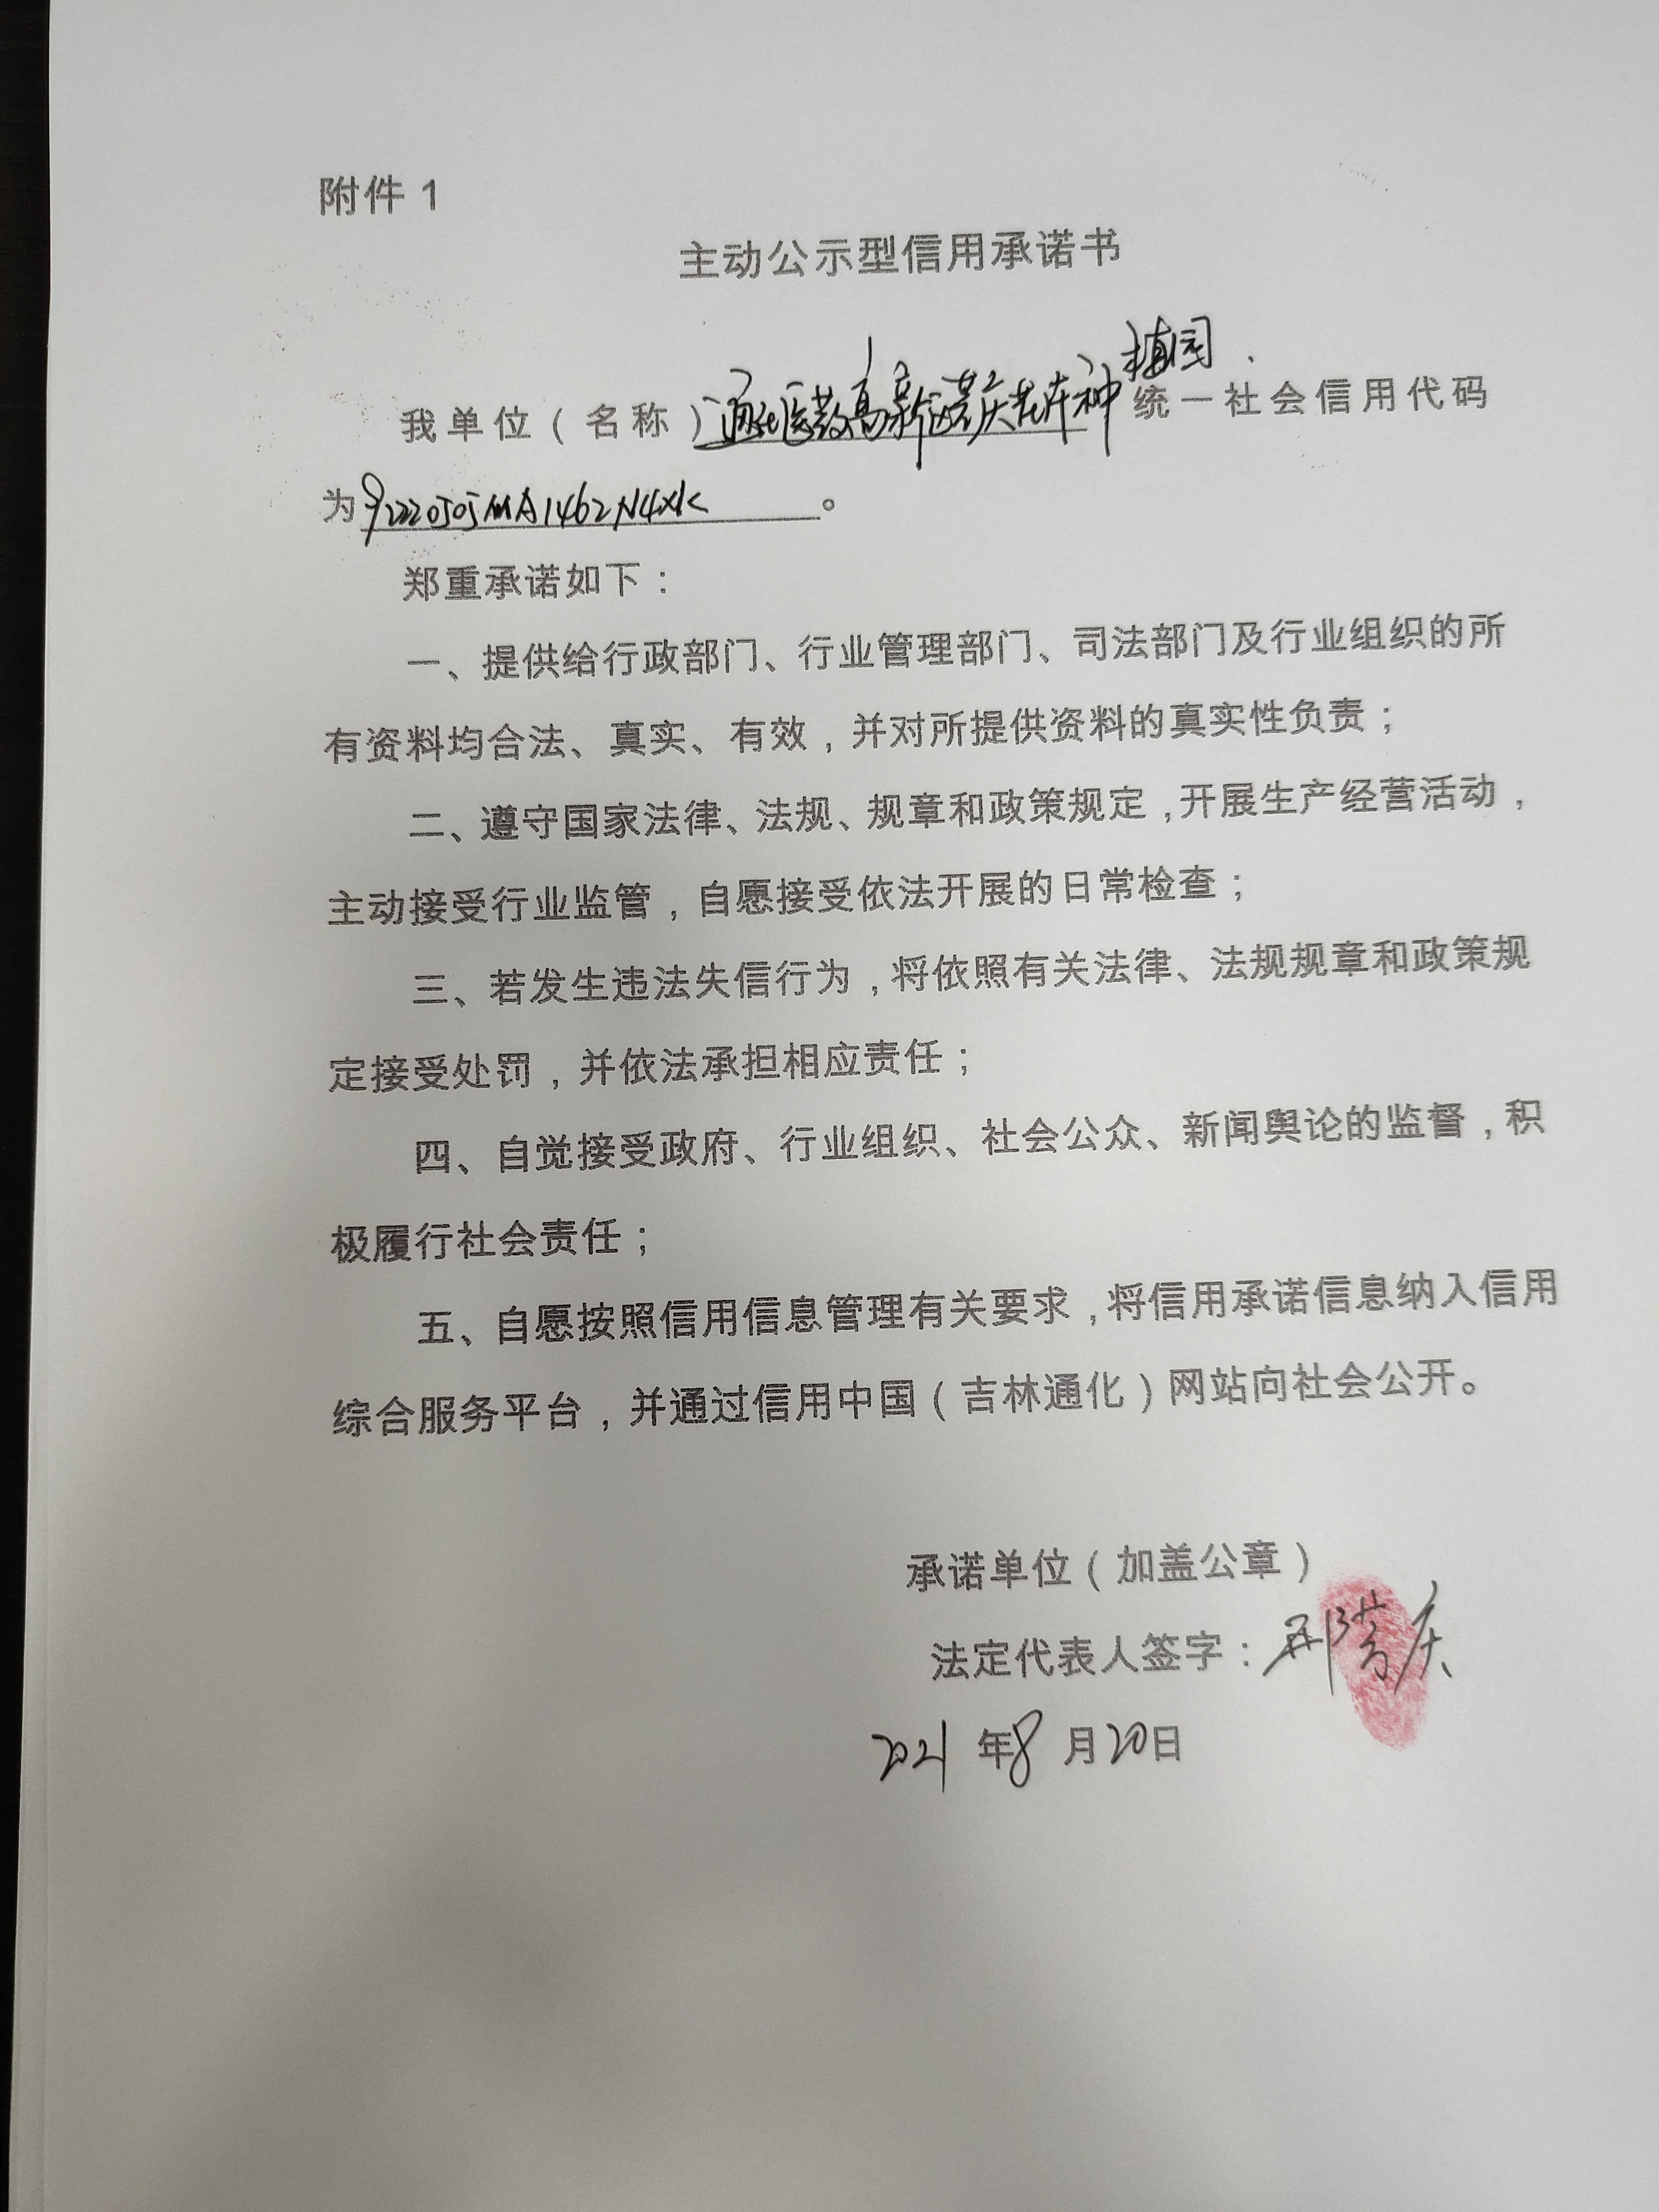 附件 1
主动公示型信用承诺书
我单位（名称）通化医药高新区芳庆花卉种植园 统一社会信用代码
为92220505MA1462N4XK。
郑重承诺如下：
一、提供给行政部门、行业管理部门、司法部门及行业组织的所
有资料均合法、真实、有效，并对所提供资料的真实性负责；
二、遵守国家法律、法规、规章和政策规定，开展生产经营活动，
主动接受行业监管，自愿接受依法开展的日常检查；
三、若发生违法失信行为，将依照有关法律、法规规章和政策规
定接受处罚，并依法承担相应责任；
四、自觉接受政府、行业组织、社会公众、新闻舆论的监督，积
极履行社会责任；
五、自愿按照信用信息管理有关要求，将信用承诺信息纳入信用
综合服务平台，并通过信用中国（吉林通化）网站向社会公开。
承诺单位（加盖公章）
法定代表人签字：邢芳庆
2021 年8 月20日